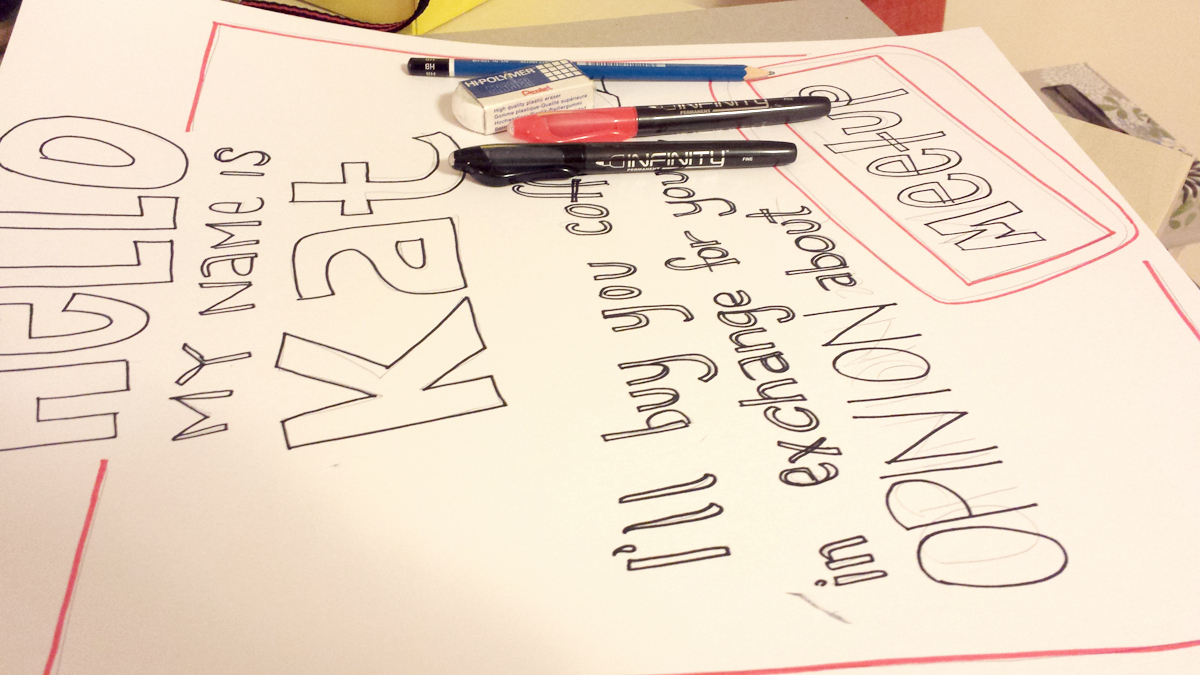 HeLLO
MY NAMe IS
Kat
I'll buy you
in exchange for
OPINION about
Meetup
HB
HI-POLYMER
Pentel
High quality plastic eraser
Gomme plastique Qualité supérieure
INFINITY
PERMANENT
INFINITY
PERMANENT FINE